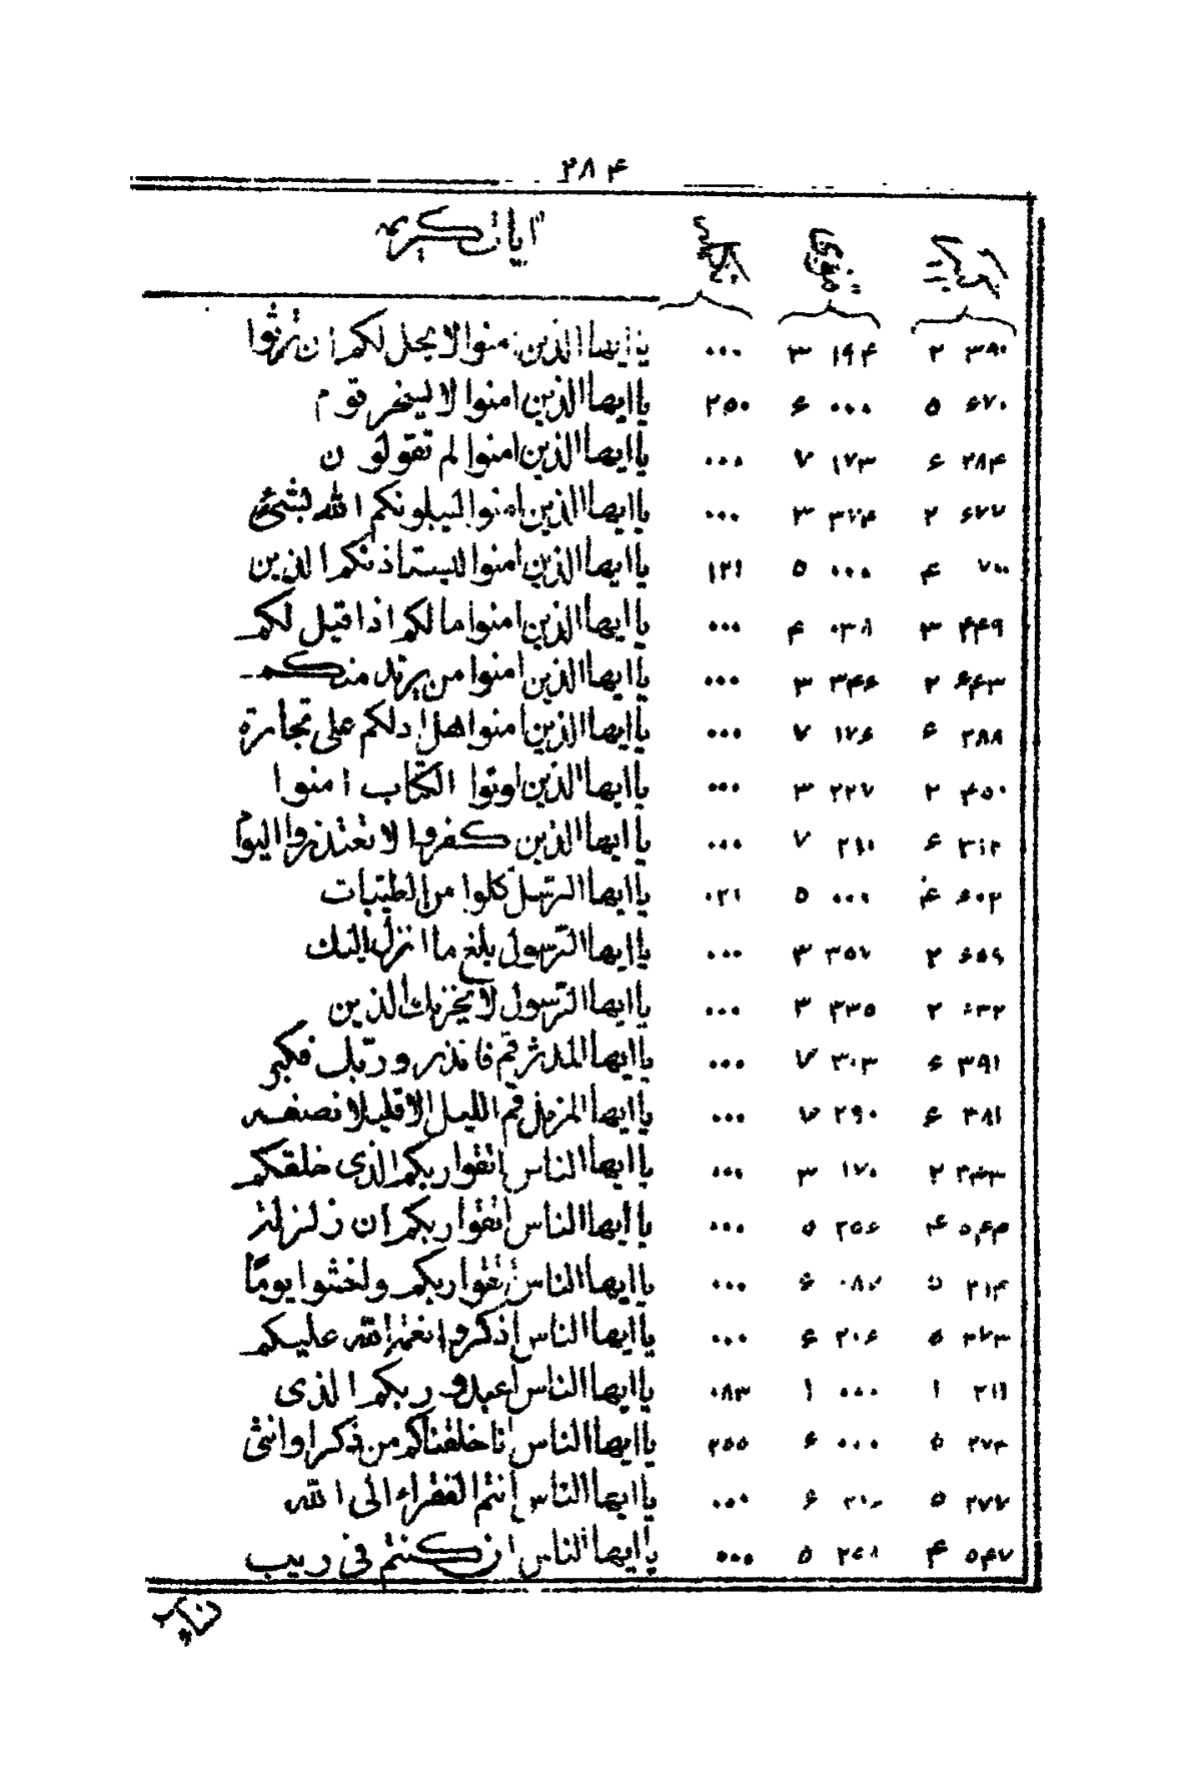 ۲۸۴
آیات کریمه
۳۹۰ ۲ ۱۹۴ ۳ ۰۰۰ یا ایها الذین امنوا لا یحل لکم ان ترثوا
۶۷۰ ۵ ۰۰۰ ۶ ۲۵۰ یا ایها الذین امنوا لا یسخر قوم
۲۸۴ ۶ ۱۷۳ ۷ ۰۰۰ یا ایها الذین امنوا لم تقولون
۶۷۷ ۲ ۳۷۴ ۳ ۰۰۰ یا ایها الذین امنوا لیبلونکم الله بشئ
۷۰۰ ۴ ۰۰۰ ۵ ۱۲۱ یا ایها الذین امنوا لیستاذنکم الذین
۴۴۹ ۳ ۰۳۸ ۴ ۰۰۰ یا ایها الذین امنوا مالکم اذا قیل لکم
۶۴۳ ۲ ۳۴۶ ۳ ۰۰۰ یا ایها الذین امنوا من یرتد منکم
۲۸۸ ۶ ۱۷۶ ۷ ۰۰۰ یا ایها الذین امنوا هل ادلکم علی تجارة
۴۵۰ ۲ ۲۲۷ ۳ ۰۰۰ یا ایها الذین اوتوا الکتاب امنوا
۳۱۲ ۶ ۲۱۰ ۷ ۰۰۰ یا ایها الذین کفروا لا تعتذروا الیوم
۶۰۲ ۴ ۰۰۰ ۵ ۰۲۱ یا ایها الرسل کلوا من الطیبات
۶۵۹ ۲ ۳۵۷ ۳ ۰۰۰ یا ایها الرسول بلغ ما انزل الیک
۶۳۲ ۲ ۳۳۵ ۳ ۰۰۰ یا ایها الرسول لا یحزنک الذین
۳۹۱ ۶ ۳۰۳ ۷ ۰۰۰ یا ایها المدثر قم فانذر و ربک فکبر
۳۸۱ ۶ ۲۹۰ ۷ ۰۰۰ یا ایها المزمل قم اللیل الا قلیلا نصفه
۳۳۳ ۲ ۱۷۰ ۳ ۰۰۰ یا ایها الناس اتقوا ربکم الذی خلقکم
۵۴۳ ۴ ۲۵۶ ۵ ۰۰۰ یا ایها الناس اتقوا ربکم ان زلزلة
۲۱۴ ۵ ۰۸۷ ۶ ۰۰۰ یا ایها الناس اتقوا ربکم واخشوا یوما
۳۷۳ ۵ ۲۰۶ ۶ ۰۰۰ یا ایها الناس اذکروا نعمة الله علیکم
۲۱۱ ۱ ۰۰۰ ۱ ۰۸۳ یا ایها الناس اعبدو ربکم الذی
۲۷۳ ۵ ۰۰۰ ۶ ۲۵۵ یا ایها الناس انا خلقناکم من ذکر وانثی
۲۷۷ ۵ ۲۱۰ ۶ ۰۰۰ یا ایها الناس انتم الفقراء الی الله
۵۴۷ ۴ ۲۶۸ ۵ ۰۰۰ یا ایها الناس ان کنتم فی ریب